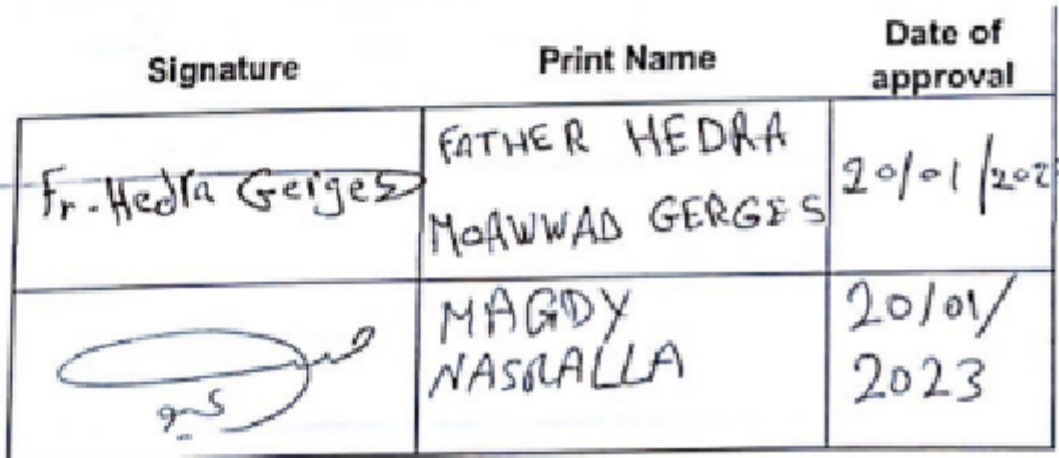 Signature Print Name Date of
approval
Fr. Hedra Gerges FATHER HEDRA
MOAWWAD GERGES 20/01/202
MAGDY
NASRALLA 20/01/
2023